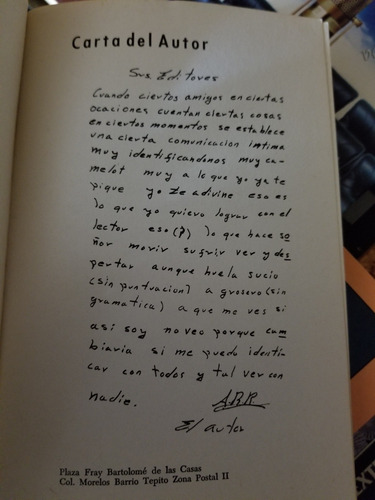 Carta del Autor
Srs Editores
Cuando ciertos amigos en ciertas
ocaciones cuentan ciertas cosas
en ciertos momentos se establece
una cierta comunicacion intima
muy identificandonos muy ca-
melot muy a lo que yo ya te
pique yo te adivine eso es
lo que yo quiero lograr con el
lector eso (?) lo que hace so
ñar morir sufrir ver y des
pertar aunque huela sucio
(sin puntuacion) a grosero (sin
gramatica) a que me ves si
asi soy no veo porque cam
biaria si me puedo identifi
car con todos y tal vez con
nadie.
A.R.R
El autor
Plaza Fray Bartolomé de las Casas
Col. Morelos Barrio Tepito Zona Postal II